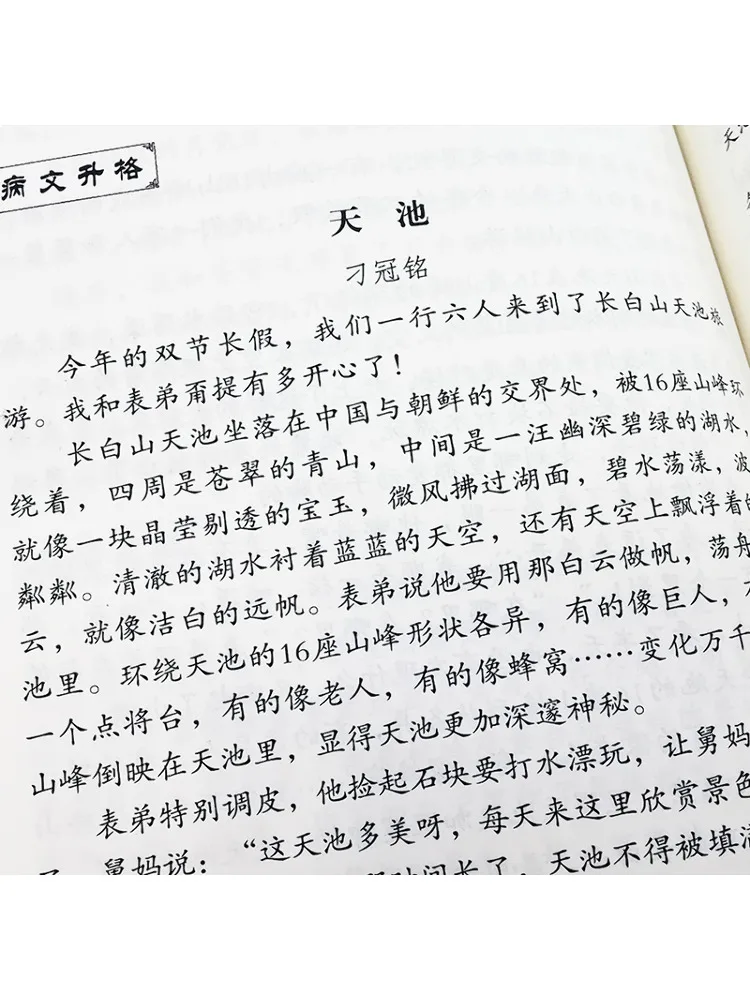 病文升格
天池
刁冠铭
今年的双节长假，我们一行六人来到了长白山天池旅
游。我和表弟甭提有多开心了！
长白山天池坐落在中国与朝鲜的交界处，被16座山峰环
绕着，四周是苍翠的青山，中间是一汪幽深碧绿的湖水，
就像一块晶莹剔透的宝玉，微风拂过湖面，碧水荡漾，波
粼粼。清澈的湖水衬着蓝蓝的天空，还有天空上飘浮着的
云，就像洁白的远帆。表弟说他要用那白云做帆，荡舟
池里。环绕天池的16座山峰形状各异，有的像巨人，
一个点将台，有的像老人，有的像蜂窝……变化万千
山峰倒映在天池里，显得天池更加深邃神秘。
表弟特别调皮，他捡起石块要打水漂玩，让舅妈
舅妈说：“这天池多美呀，每天来这里欣赏景色
时间长了，天池不得被填满